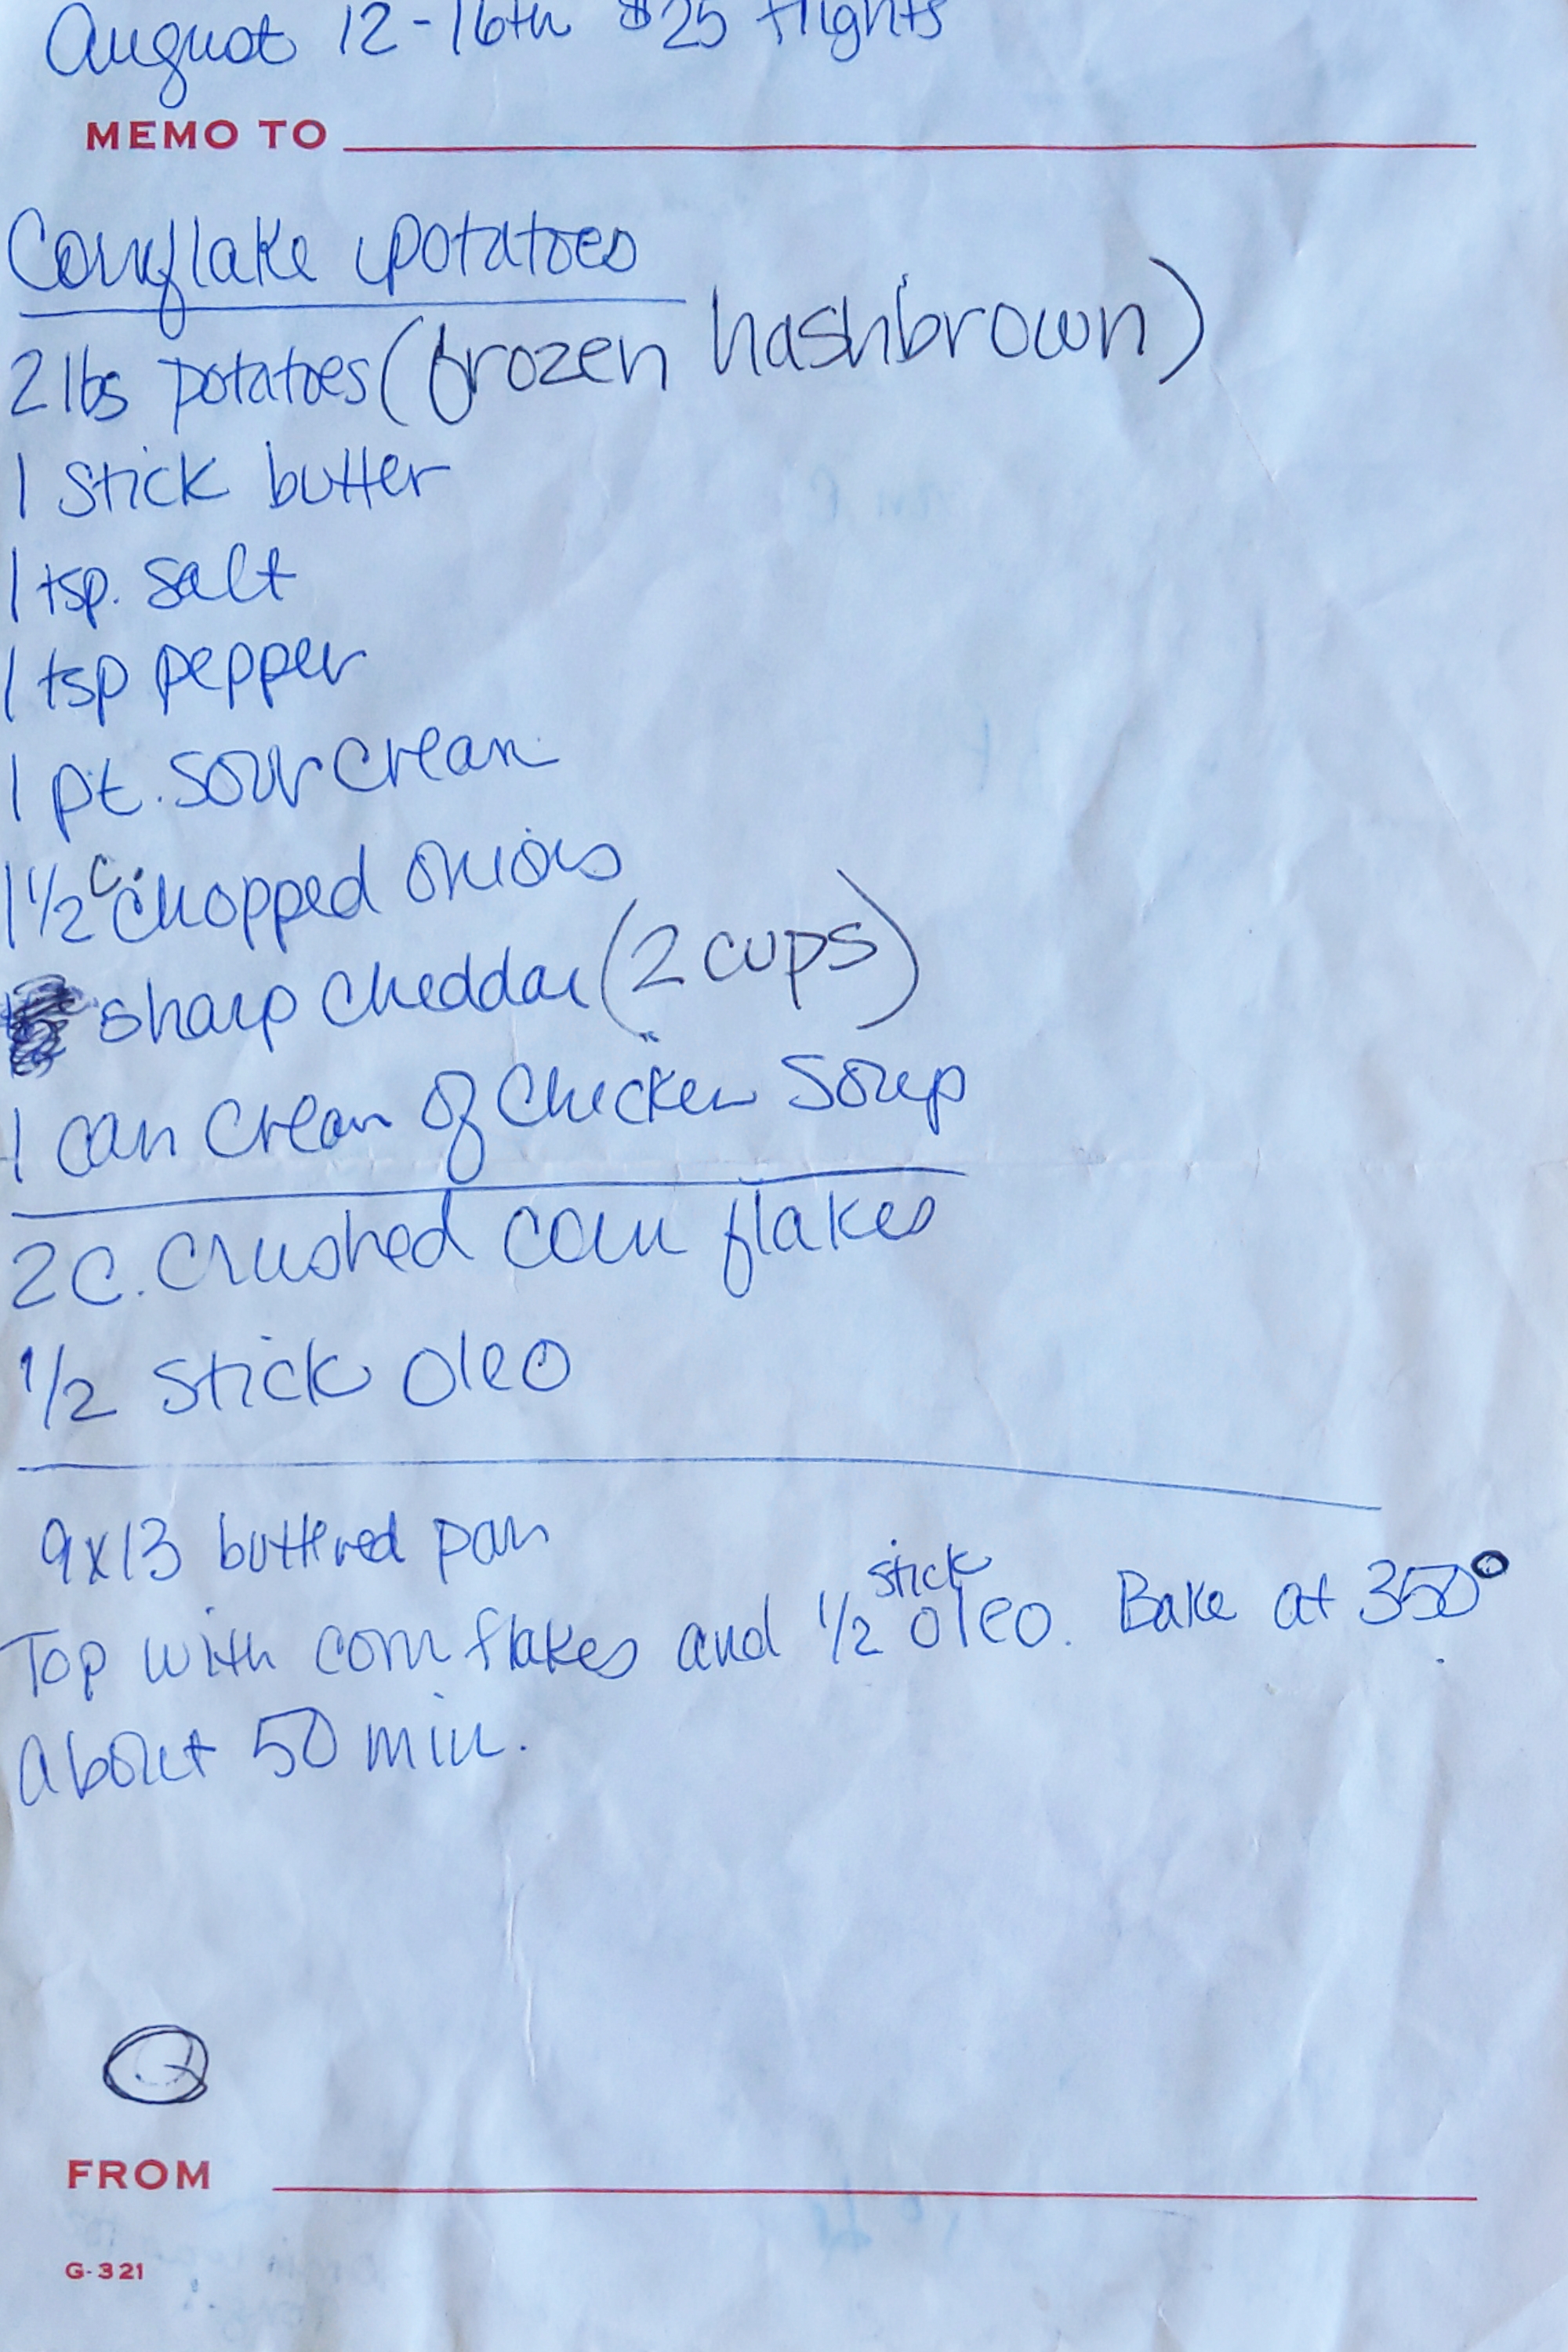 August 12-16th $25 flights
MEMO TO
Cornflake potatoes
2 lbs potatoes (frozen hashbrown)
1 stick butter
1 tsp. salt
1 tsp pepper
1 pt. sour cream
1 1/2 c. chopped onions
sharp cheddar (2 cups)
1 can cream of chicken soup
2 c. crushed corn flakes
1/2 stick oleo
9x13 buttered pan
Top with corn flakes and 1/2 stick oleo. Bake at 350°
about 50 min.
FROM
G-321